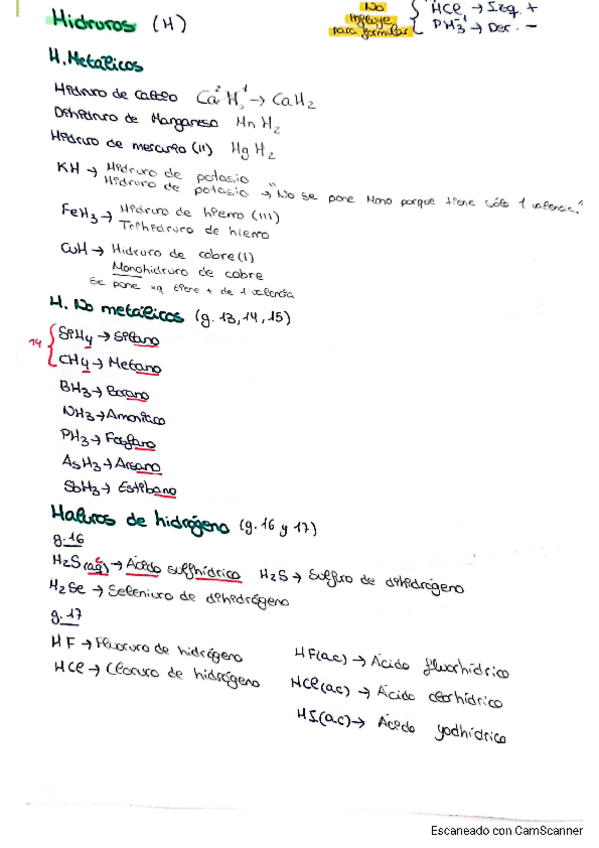 Hidruros (H)
No influye para formular { HCl → Izq. +
PH3 → Der. -
H. Metálicos
Hidruro de calcio Ca² H¹ → CaH2
Dihidruro de Manganeso MnH2
Hidruro de mercurio (II) HgH2
KH → Hidruro de potasio
Hidruro de potasio → "No se pone Mono porque tiene sólo 1 valencia."
FeH3 → Hidruro de hierro (III)
Trihidruro de hierro
CuH → Hidruro de cobre(I)
Monohidruro de cobre
Se pone xq tiene + de 1 valencia
H. No metálicos (g. 13, 14, 15)
14 { SiH4 → Silano
CH4 → Metano
BH3 → Borano
NH3 → Amoniaco
PH3 → Fosfano
AsH3 → Arsano
SbH3 → Estibano
Haluros de hidrógeno (g. 16 y 17)
g. 16
H2S (aq) → Ácido sulfhídrico H2S → Sulfuro de dihidrógeno
H2Se → Seleniuro de dihidrógeno
g. 17
HF → Fluoruro de hidrógeno HF(ac) → Ácido fluorhídrico
HCl → Cloruro de hidrógeno HCl(ac) → Ácido clorhídrico
HI(ac) → Ácido yodhídrico
Escaneado con CamScanner